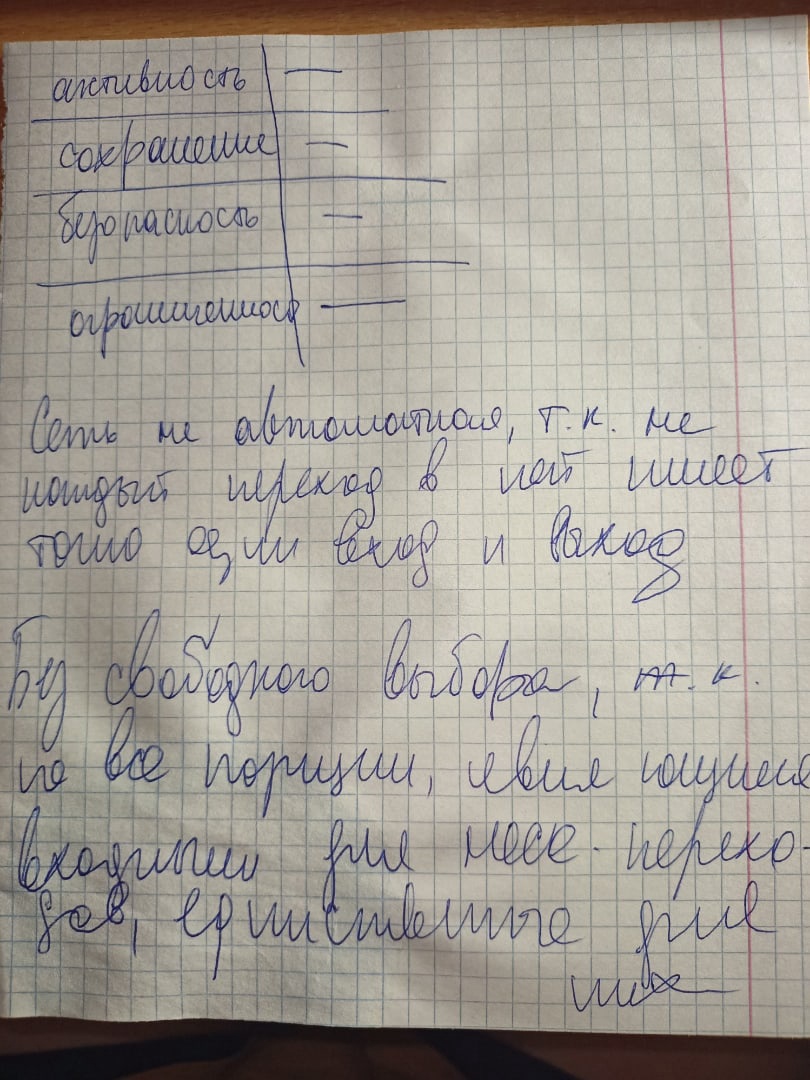 активность —
сохранение —
безопасность —
ограниченност —
Сеть не автоматная, т.к. не
каждый переход в ней имеет
точно один вход и выход
Без свободного выбора, т.к.
не все позиции, являющиеся
входными для неск. перехо-
дов, единственные для
них